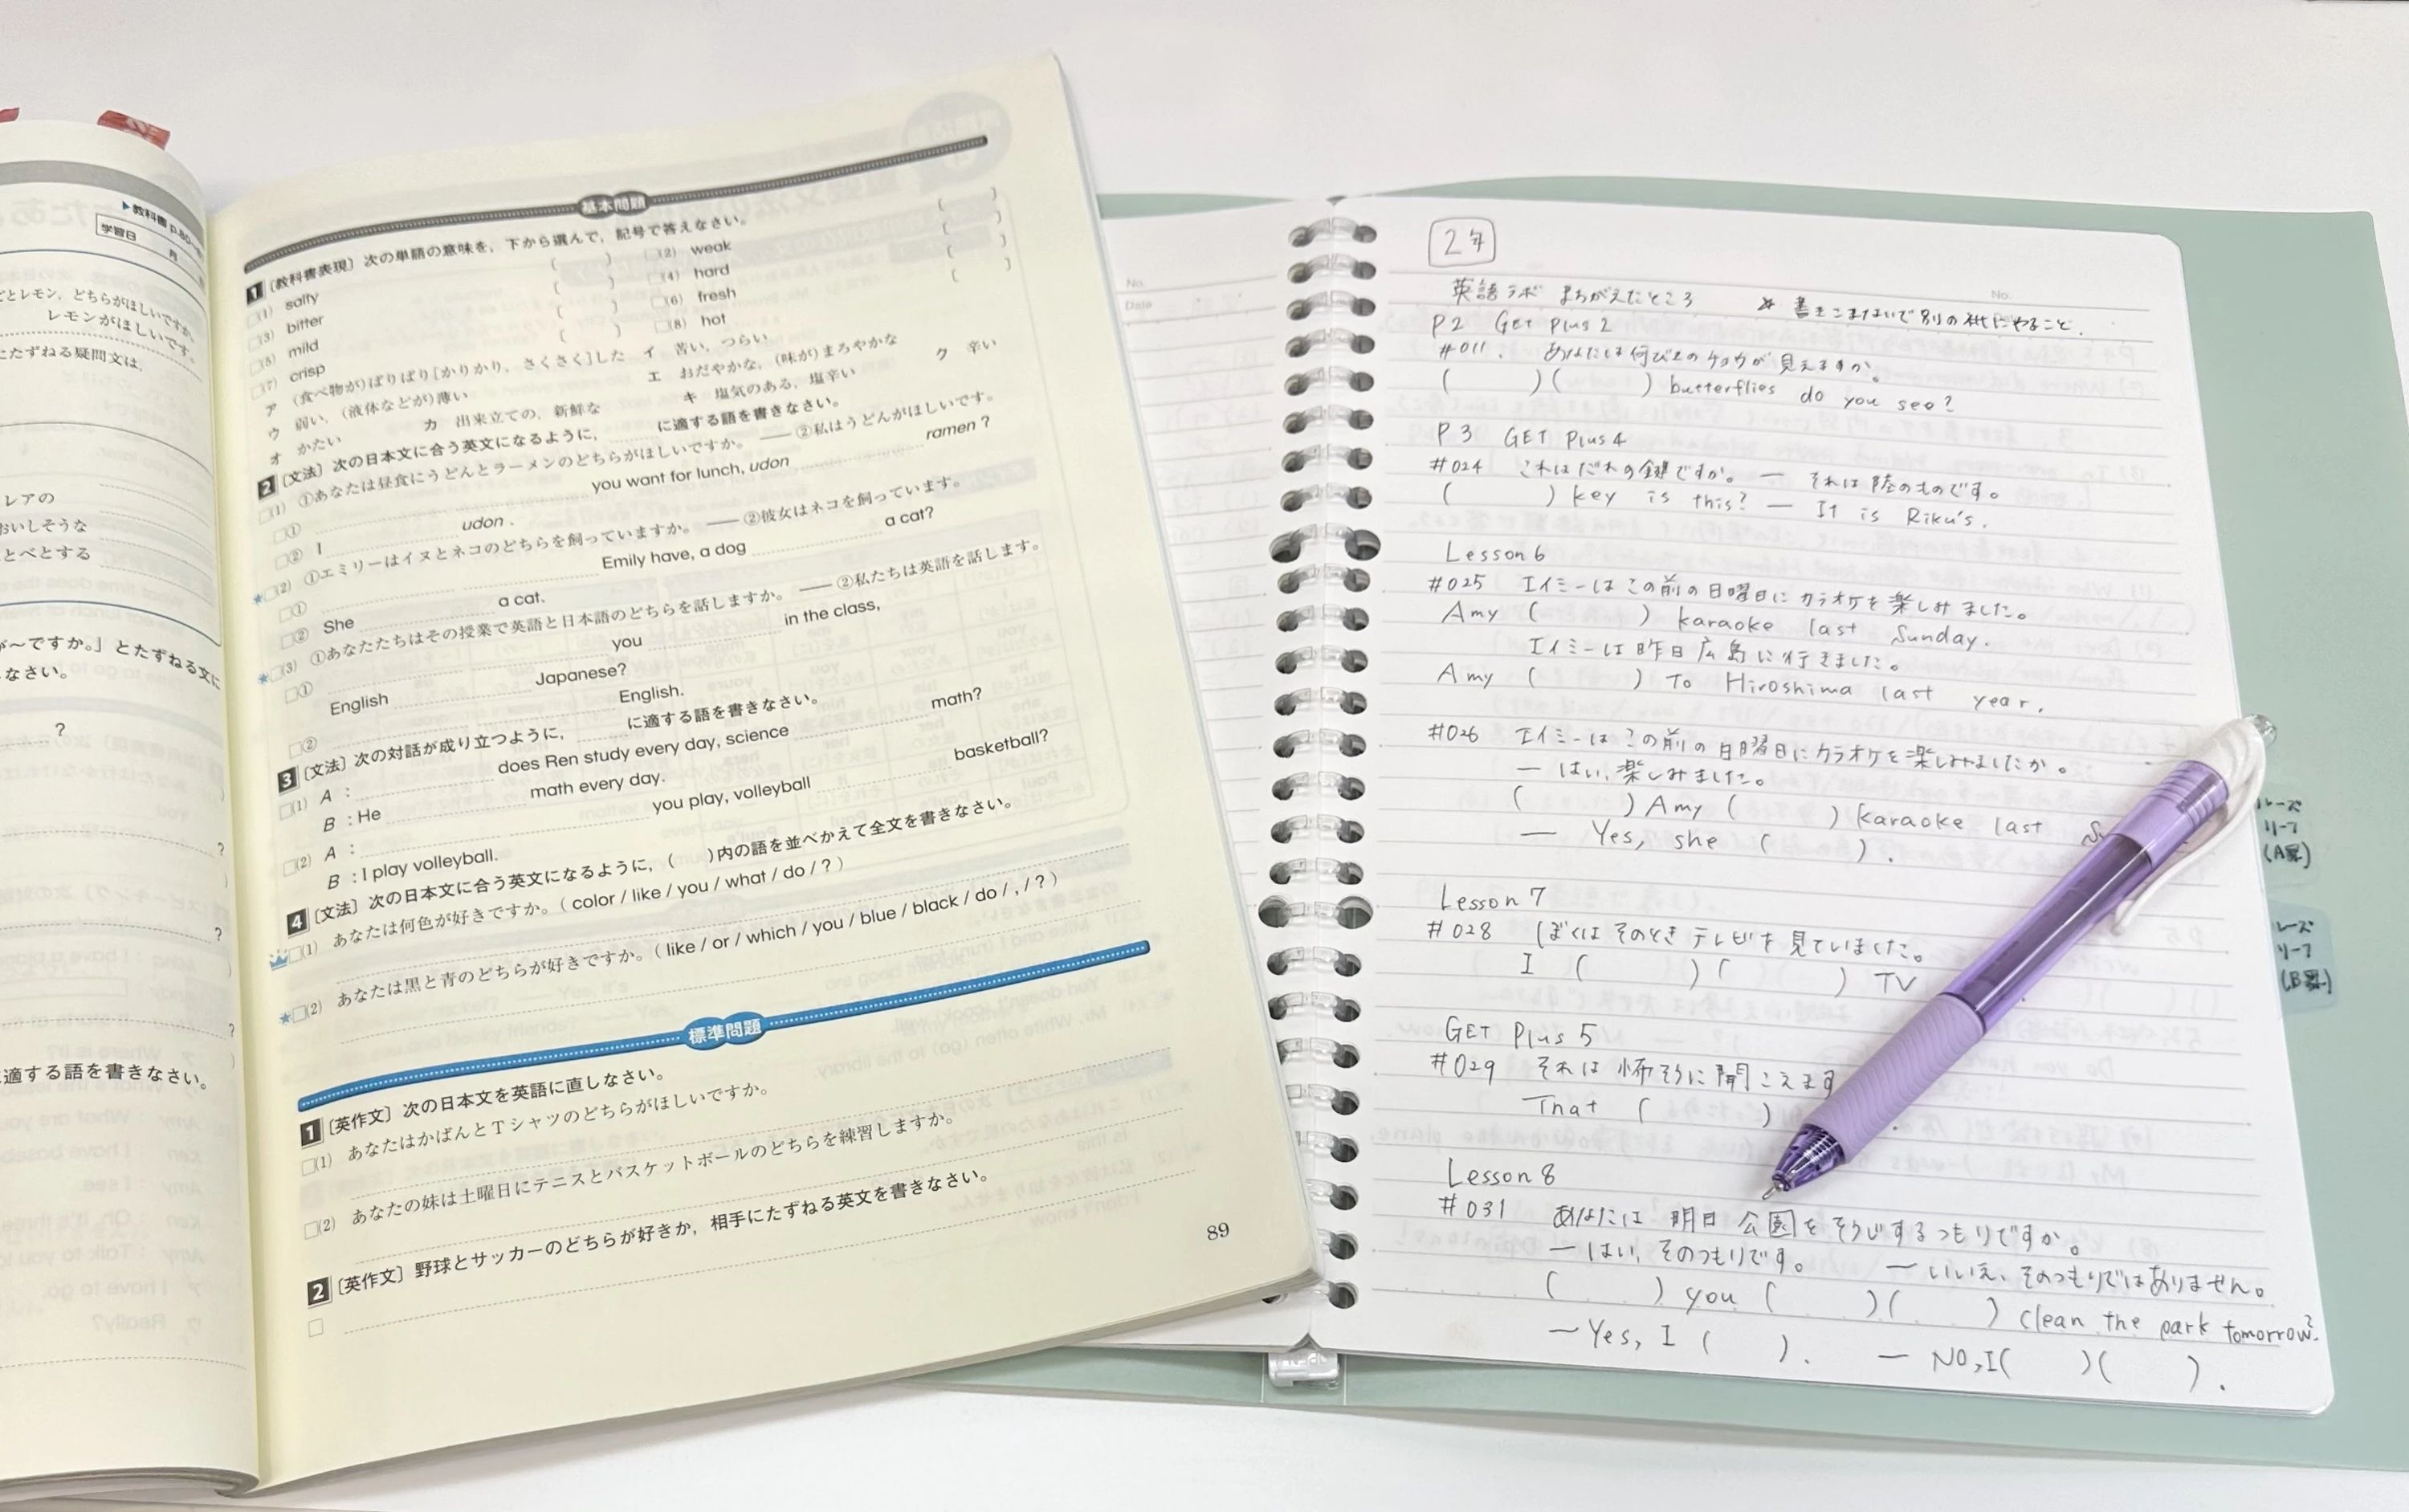 ▶教科書 p.80
学習日 月
ごとレモン，どちらがほしいですか
レモンがほしいです。
にたずねる疑問文は，
レアの
おいしそうな
とべとする
が〜ですか。」とたずねる文に
さなさい。
?
?
?
?
に適する語を書きなさい。
基本問題
1 〔教科書表現〕次の単語の意味を，下から選んで，記号で答えなさい。
□(1) salty ( ) □(2) weak ( )
□(3) bitter ( ) □(4) hard ( )
□(5) mild ( ) □(6) fresh ( )
□(7) crisp ( ) □(8) hot ( )
ア (食べ物が)ぱりぱり[かりかり，さくさく]した イ 苦い，つらい
ウ 弱い，(液体などが)薄い エ おだやかな，(味が)まろやかな ク 辛い
オ かたい カ 出来立ての，新鮮な キ 塩気のある，塩辛い
2 〔文法〕次の日本文に合う英文になるように，＿＿に適する語を書きなさい。
□(1) ①あなたは昼食にうどんとラーメンのどちらがほしいですか。 ── ②私はうどんがほしいです。
□① ＿＿ ＿＿ you want for lunch, udon ＿＿ ramen ?
□② I ＿＿ udon .
★□(2) ①エミリーはイヌとネコのどちらを飼っていますか。 ── ②彼女はネコを飼っています。
□① ＿＿ ＿＿ Emily have, a dog ＿＿ a cat?
□② She ＿＿ a cat.
★□(3) ①あなたたちはその授業で英語と日本語のどちらを話しますか。 ── ②私たちは英語を話します。
□① ＿＿ ＿＿ you ＿＿ in the class,
English ＿＿ Japanese?
□② ＿＿ ＿＿ English.
3 〔文法〕次の対話が成り立つように，＿＿に適する語を書きなさい。
□(1) A : ＿＿ does Ren study every day, science ＿＿ math?
B : He ＿＿ math every day.
□(2) A : ＿＿ ＿＿ you play, volleyball ＿＿ basketball?
B : I play volleyball.
4 〔文法〕次の日本文に合う英文になるように，( )内の語を並べかえて全文を書きなさい。
□(1) あなたは何色が好きですか。( color / like / you / what / do / ? )
★□(2) あなたは黒と青のどちらが好きですか。( like / or / which / you / blue / black / do / , / ? )
標準問題
1 〔英作文〕次の日本文を英語に直しなさい。
□(1) あなたはかばんとTシャツのどちらがほしいですか。
□(2) あなたの妹は土曜日にテニスとバスケットボールのどちらを練習しますか。
2 〔英作文〕野球とサッカーのどちらが好きか，相手にたずねる英文を書きなさい。
□
89
No.
Date
2年
No.
英語ラボ まちがえたところ ※ 書きこまないで別の紙にやること.
P2 Get Plus 2
#011. あなたは何びきのチョウが見えますか。
( )( ) butterflies do you see?
P3 GET Plus 4
#024 これはだれの鍵ですか。 ― それは陸のものです。
( ) key is this? ― It is Riku's.
Lesson 6
#025 エイミーはこの前の日曜日にカラオケを楽しみました。
Amy ( ) karaoke last Sunday.
エイミーは昨日広島に行きました。
Amy ( ) to Hiroshima last year.
#026 エイミーはこの前の日曜日にカラオケを楽しみましたか。
― はい,楽しみました。
( ) Amy ( ) karaoke last
― Yes, she ( ).
Lesson 7
#028 ぼくはそのときテレビを見ていました。
I ( )( ) TV
GET Plus 5
#029 それは怖そうに聞こえます
That ( )
Lesson 8
#031 あなたは明日公園をそうじするつもりですか。
― はい,そのつもりです。 ― いいえ,そのつもりではありません。
( ) you ( )( ) clean the park tomorrow?
― Yes, I ( ). ― No, I( )( ).
ルーズ
リーフ
(A罫)
ルーズ
リーフ
(B罫)